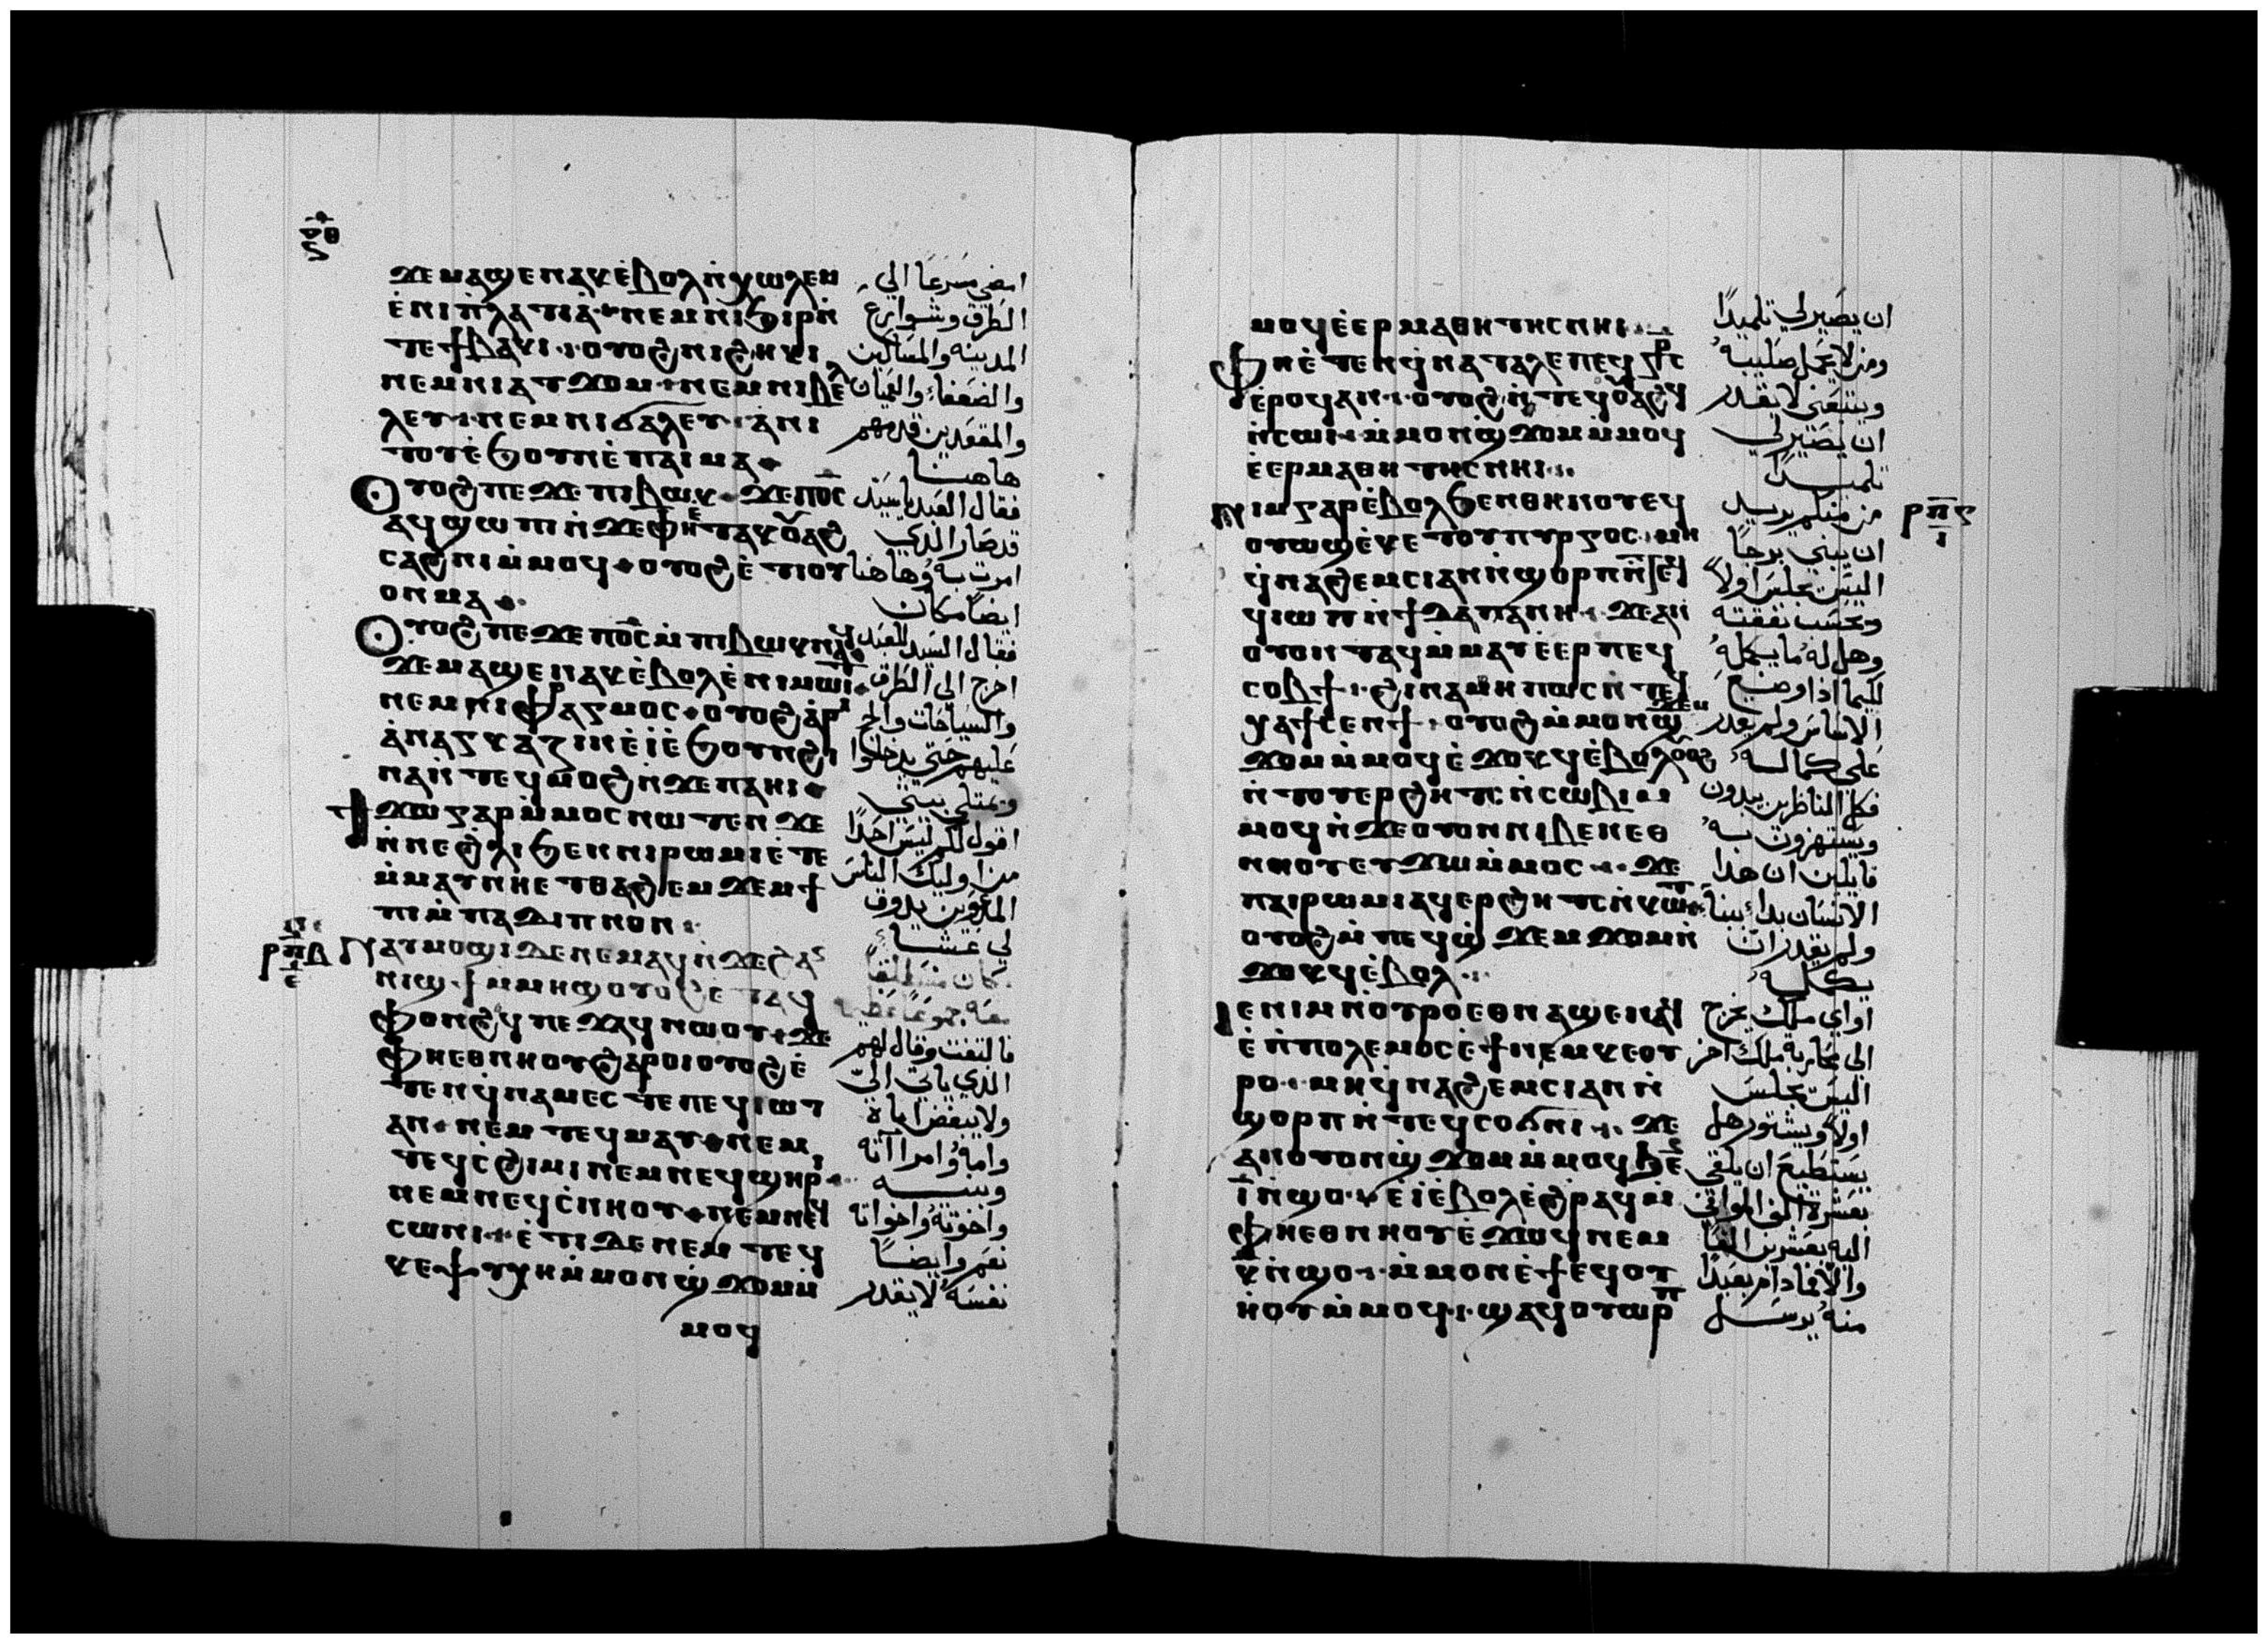 ⲟ̅ⲑ
ϫⲉⲙⲁϣⲉⲛⲁⲕⲉ̀ⲃⲟⲗⲛ̀ⲭⲱⲗⲉⲙ
ⲉ̀ⲛⲓⲡ̀ⲗⲁⲧⲓⲁ̀ ⲛⲉⲙⲛⲓϧⲓⲣⲛ̀
ⲧⲉϯⲃⲁⲕⲓ ⲟⲩⲟϩⲛⲓϩⲏⲕⲓ
ⲛⲉⲙⲛⲓⲁⲧϫⲟⲙ ⲛⲉⲙⲛⲓⲃⲉⲗ
ⲗⲉⲩ ⲛⲉⲙⲛⲓϭⲁⲗⲉⲩ ⲁ̀ⲛⲓ
ⲧⲟⲩⲉ̀ϧⲟⲩⲛⲉ̀ⲡⲁⲓⲙⲁ
ⲟⲩⲟϩⲡⲉϫⲉⲡⲓⲃⲱⲕ ϫⲉⲡⲟ̅ⲥ
ⲁϥϣⲱⲡⲓⲛ̀ϫⲉⲫⲏⲉⲧⲁⲕⲟⲩⲁϩ
ⲥⲁϩⲛⲓⲙ̀ⲙⲟϥ ⲟⲩⲟϩⲉ̀ⲧⲓⲟⲩ
ⲟⲛⲙⲁ
ⲟⲩⲟϩⲡⲉϫⲉⲡⲟ̅ⲥⲙ̀ⲡⲓⲃⲱⲕⲛⲁϥ
ϫⲉⲙⲁϣⲉⲛⲁⲕⲉ̀ⲃⲟⲗⲉ̀ⲛⲓⲙⲱⲓⲧ
ⲛⲉⲙⲛⲓⲫⲣⲁⲅⲙⲟⲥ ⲟⲩⲟϩⲁⲣⲓ
ⲁ̀ⲛⲁⲅⲕⲁⲍⲓⲛⲉ̀ⲓ̀ⲉ̀ϧⲟⲩⲛϩⲓ
ⲛⲁⲛ̀ⲧⲉϥⲙⲟϩⲛ̀ϫⲉⲡⲁⲏⲓ
ϯϫⲱⲅⲁⲣⲙ̀ⲙⲟⲥⲛⲱⲧⲉⲛ ϫⲉ
ⲛ̀ⲛⲉϩⲗⲓϧⲉⲛⲛⲓⲣⲱⲙⲓⲉ̀ⲧⲉ
ⲙ̀ⲙⲁⲩⲛⲏⲉⲧⲑⲁϩⲉⲙϫⲉⲙϯ
ⲡⲓⲙ̀ⲡⲁⲇⲓⲡⲛⲟⲛ
ⲣⲡ̅ⲃ ⲛⲁⲩⲙⲟϣⲓⲇⲉⲛⲉⲙⲁϥⲛ̀ϫⲉϩⲁⲛ
ⲛⲓϣϯⲙ̀ⲙⲏϣⲟⲩⲟϩⲉⲧⲁϥ
ⲫⲟⲛϩϥⲡⲉϫⲁϥⲛⲱⲟⲩ ϫⲉ
ⲫⲏⲉⲑⲛⲏⲟⲩϩⲁⲣⲟⲓⲟⲩⲟϩⲉ̀
ⲧⲉⲛϥ̀ⲛⲁⲙⲉⲥⲧⲉⲡⲉϥⲓⲱⲧ
ⲁⲛ ⲛⲉⲙⲧⲉϥⲙⲁⲩ ⲛⲉⲙ
ⲧⲉϥⲥ̀ϩⲓⲙⲓⲛⲉⲙⲛⲉϥϣⲏⲣⲓ
ⲛⲉⲙⲛⲉϥⲥ̀ⲛⲏⲟⲩ ⲛⲉⲙⲛⲉϥ
ⲥⲱⲛⲓ ⲉ̀ⲧⲓⲇⲉⲛⲉⲙⲧⲉϥ
ⲕⲉⲯⲩⲭⲏⲙ̀ⲙⲟⲛϣ̀ϫⲟⲙⲙ̀
ⲙⲟϥ
امضي مسرعًا الي
الطرق وشوارع
المدينه والمساكين
والضعفاء والعميان
والمقعدين قدمهم
هاهنا
فقال العبد ياسيد
قد صار الذي
امرت به وهاهنا
ايضا مكان
فقال السيد للعبد
اخرج الي الطرق
والسياجات والح
عليهم حتي يدخلوا
ويمتلي بيتي
اقول لكم ليس احدًا
من اوليك الناس
المدعوين يذوق
لي عشاء
معه جموعًا عظيمه
فالتفت وقال لهم
الذي ياتي الي
ولا يبغض اباه
وامه وامراته
وبنيه
واخوته واخواته
نعم وايضا
نفسه لا يقدر
ⲙⲟϥⲉ̀ⲉⲣⲙⲁⲑⲏⲧⲏⲥⲛⲏⲓ
ⲫⲏⲉ̀ⲧⲉⲛϥ̀ⲛⲁⲧⲁⲗⲉⲡⲉϥⲥ̅ⲣ̅ⲥ
ⲉ̀ⲣⲟϥⲁⲛ ⲟⲩⲟϩⲛ̀ⲧⲉϥⲟⲩⲁϩϥ
ⲛ̀ⲥⲱⲓ ⲙ̀ⲙⲟⲛϣ̀ϫⲟⲙⲙ̀ⲙⲟϥ
ⲉ̀ⲉⲣⲙⲁⲑⲏⲧⲏⲥⲛⲏⲓ
ⲛⲓⲙⲅⲁⲣⲉ̀ⲃⲟⲗϧⲉⲛⲑⲏⲛⲟⲩⲉϥ
ⲟⲩⲱϣⲉ̀ⲕⲉⲧⲟⲩⲡⲩⲣⲅⲟⲥ ⲙⲏ
ϥ̀ⲛⲁϩⲉⲙⲥⲓⲁⲛⲛ̀ϣⲟⲣⲡⲛ̅ⲧⲉϥ
ϥⲓⲱⲡⲛ̀ϯⲇⲁⲡⲁⲛⲏ ϫⲉⲁⲛ
ⲟⲩⲟⲛⲧⲁϥⲙ̀ⲙⲁⲩⲉ̀ⲉⲣⲡⲉϥ
ⲥⲟⲃϯ ϩⲓⲛⲁⲙⲏⲡⲱⲥⲛ̀ⲧⲉϥ
ⲭⲁϯⲥⲉⲛϯ ⲟⲩⲟϩⲙ̀ⲙⲟⲛϣϫⲉⲙ
ϫⲟⲙⲙ̀ⲙⲟϥⲉ̀ϫⲟⲕϥⲉ̀ⲃⲟⲗⲟⲩⲟϩ
ⲛ̀ⲧⲟⲩⲉⲣϩⲏⲧⲥⲛ̀ⲥⲱⲃⲓⲙ
ⲙⲟϥⲛ̀ϫⲉⲟⲩⲟⲛⲛⲓⲃⲉⲛⲉⲑ
ⲛⲏⲟⲩⲉⲩϫⲱⲙ̀ⲙⲟⲥ ϫⲉ
ⲡⲁⲓⲣⲱⲙⲓⲁϥⲉⲣϩⲏⲧⲥⲛ̀ⲕⲱⲧ
ⲟⲩⲟϩⲙ̀ⲡⲉϥϣ̀ϫⲉⲙϫⲟⲙⲛ̀
ϫⲟⲕϥⲉ̀ⲃⲟⲗ
ⲓⲉⲛⲓⲙⲛ̀ⲟⲩⲣⲟⲉⲑⲛⲁϣⲉⲛⲁϥ
ⲉ̀ⲡ̀ⲡⲟⲗⲉⲙⲟⲥⲉ̀ϯⲛⲉⲙⲕⲉⲟⲩ
ⲣⲟ ⲙⲏϥ̀ⲛⲁϩⲉⲙⲥⲓⲁⲛⲛ̀
ϣⲟⲣⲡⲛ̀ⲧⲉϥⲥⲟϭⲛⲓ ϫⲉ
ⲁⲛⲟⲩⲟⲛϣ̀ϫⲟⲙⲙ̀ⲙⲟϥϧⲉⲛ
ⲓ̅ⲛ̀ϣⲟ ⲉ̀ⲓ̀ⲉ̀ⲃⲟⲗⲉ̀ϩⲣⲁϥⲙ̀
ⲫⲏⲉⲑⲛⲏⲟⲩⲉ̀ϫⲱϥⲛⲉⲙ
ⲕ̅ⲛ̀ϣⲟ ⲙ̀ⲙⲟⲛⲉ̀ϯⲉϥⲟⲩ
ⲏⲟⲩⲙ̀ⲙⲟϥ ϣⲁϥⲟⲩⲱⲣⲡ
ان يصير لي تلميدًا
ومن لا يحمل صليبه
ويتبعني لا يقدر
ان يصير لي
تلميدا
من منكم يريد
ان يبني برجًا
اليس يجلس اولا
ويحسب نفقته
وهل له ما يكمله
لكيما اذا وضع
الاساس ولم يقدر
علي كماله
فكل الناظرين يبدون
ويستهزون به
قايلين ان هذا
الانسان بدا يبنا
ولم يقدر ان
يكمله
او اي ملك يخرج
الي محاربة ملك اخر
اليس يجلس
اولا ويشتور هل
يستطيع ان يلقي
بعشرة الف الموافي
اليه بعشرين الفًا
والا فما دام بعيدًا
منه يرسل
ⲣⲡ̅ⲅ